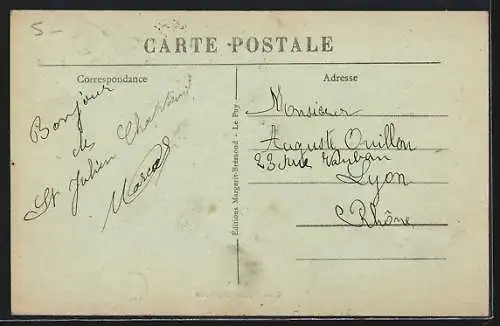 5-
CARTE POSTALE
Correspondance
Adresse
Bonjour
de
St Julien Chapteuil
Marcel
Editions Margerit-Brémond - Le Puy
Monsieur
Auguste Ouillon
23 rue Vauban
Lyon
Rhône